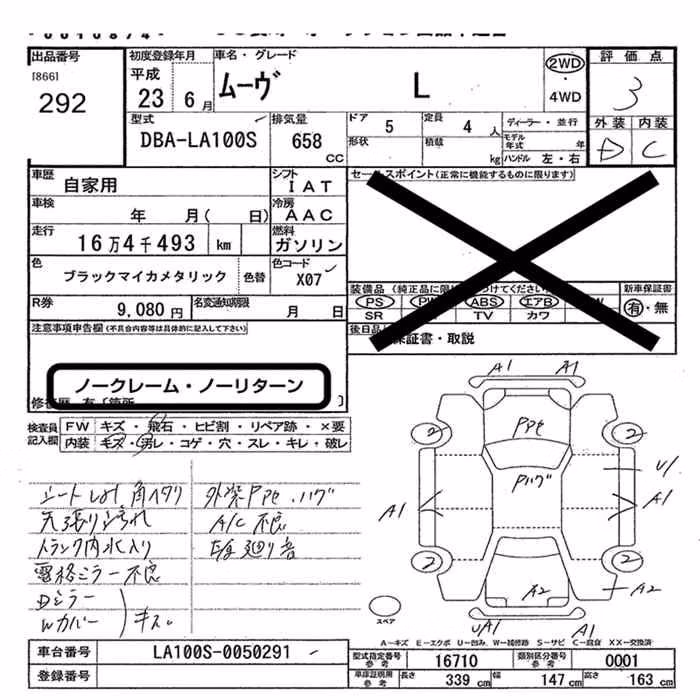 出品番号
[866]
292
初度登録年月
平成
23 6 月
車名・グレード
ムーヴ L
2WD
・
4WD
評価点
3
外装 内装
D C
型式
DBA-LA100S
排気量
658
CC
ドア 5
形状
定員 4 人
積載 kg
ディーラー・並行
モデル年式 年
ハンドル 左・右
車歴
自家用
シフト
IAT
車検
年 月( 日)
冷房
AAC
走行
16万4千493 km
燃料
ガソリン
色
ブラックマイカメタリック
色替
色コード
X07
R券
9,080 円
名変通知期限
月 日
注意事項申告欄 (不具合内容等は具体的に記入して下さい)
ノークレーム・ノーリターン
修復歴 有〔箇所 〕
セールスポイント(正常に機能するものに限ります)
装備品
PS PW ABS エアB W
SR TV カワ
新車保証書
有・無
後日品
保証書・取説
検査員
記入欄
FW キズ・飛石・ヒビ割・リペア跡・×要
内装 キズ・汚レ・コゲ・穴・スレ・キレ・破レ
シート
天張り汚れ
トランク内水入り
電格ミラー不良
Dミラー
Wカバー
キズ
外装Pもセ・ハゲ
A/C 不良
廻り音
A1 A1
2 2
Pもセ
Pハゲ
U1
A1 A1
2 2
A2 A2
UA1 A1
スペア
A-キズ E-エクボ U-凹み W-補修跡 S-サビ C-腐食 XX-交換済
車台番号
LA100S-0050291
登録番号
型式指定番号
参考
16710
類別区分番号
参考
0001
車庫証明用
参考
長さ 339 cm
幅 147 cm
高さ 163 cm